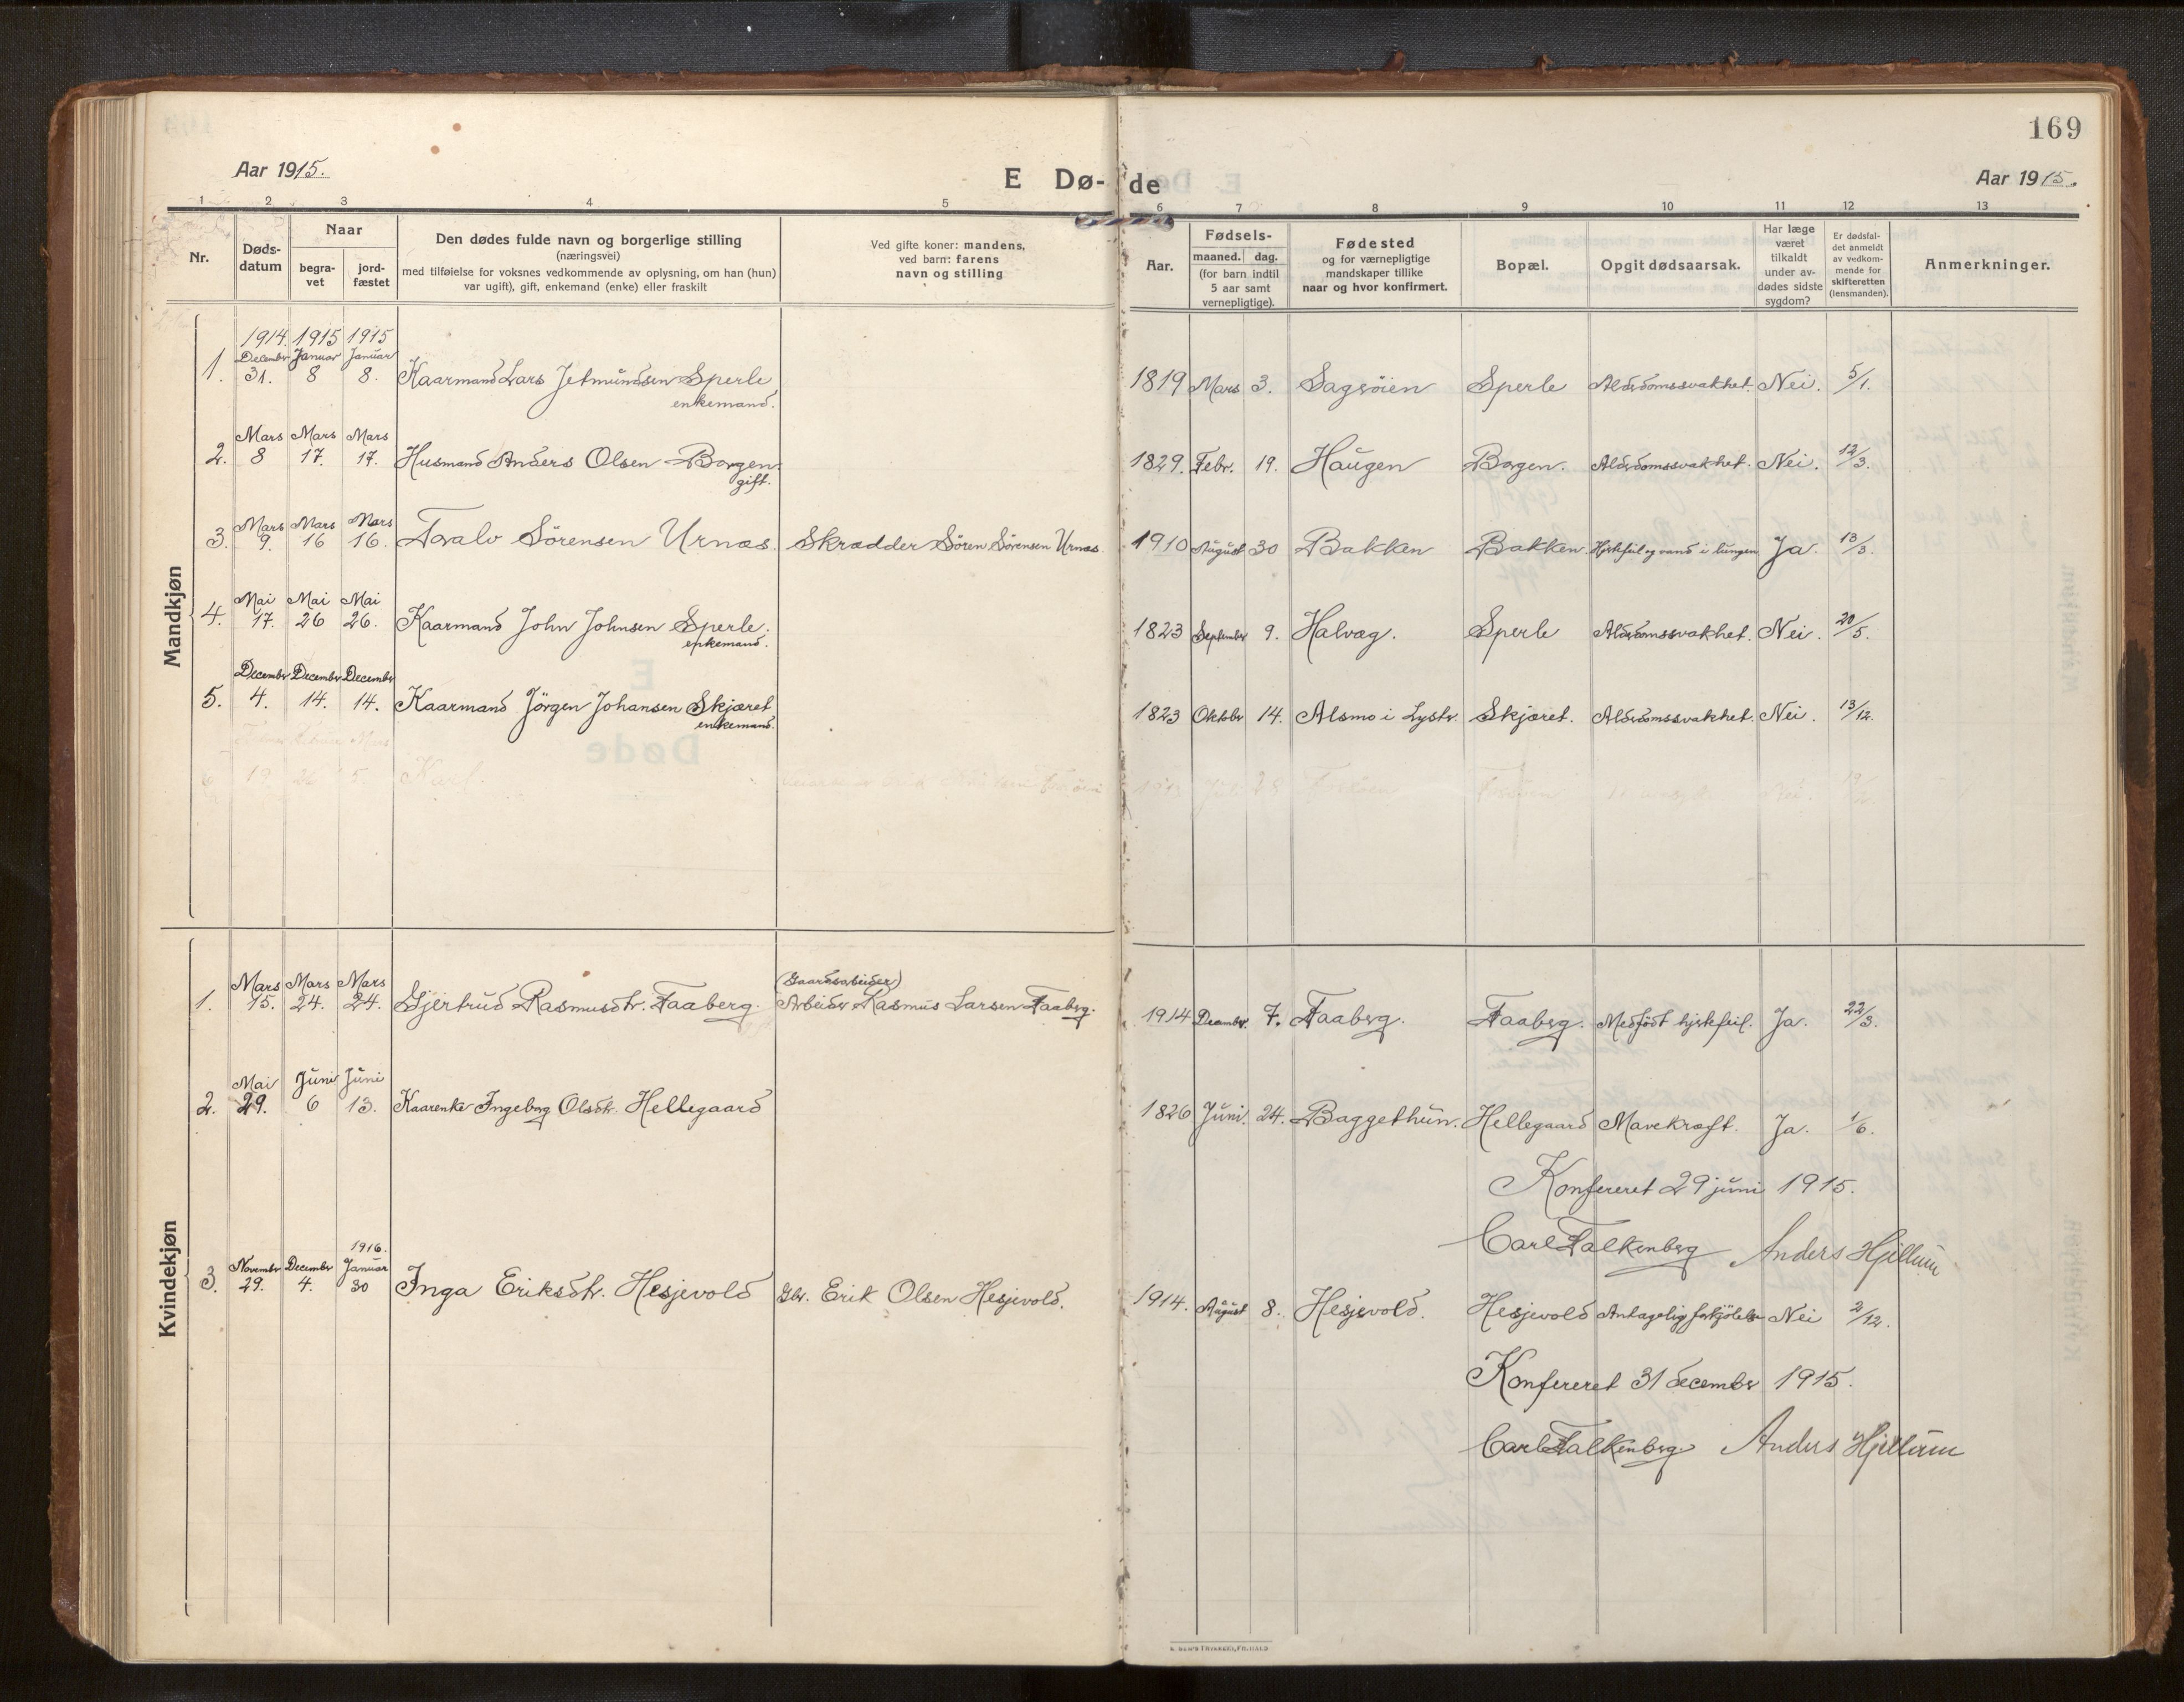 169
Aar 1915.
E Dø-de
Aar 1915.
1 2 3 4 5 6 7 8 9 10 11 12 13
Nr.
Døds-
datum
Naar
begra-
vet
jord-
fæstet
Den dødes fulde navn og borgerlige stilling
(næringsvei)
med tilføielse for voksnes vedkommende av oplysning, om han (hun)
var ugift), gift, enkemand (enke) eller fraskilt
Ved gifte koner: mandens,
ved barn: farens
navn og stilling
Aar.
Fødsels-
maaned. dag.
(for barn indtil
5 aar samt
vernepligtige).
Fødested
og for værnepligtige
mandskaper tillike
naar og hvor konfirmert.
Bopæl.
Opgit dødsaarsak.
Har læge
været
tilkaldt
under av-
dødes sidste
sygdom?
Er dødsfal-
det anmeldt
av vedkom-
mende for
skifteretten
(lensmanden).
Anmerkninger.
Mandkjøn
1914. 1915 1915
December Januar Januar
1. 31. 8 8. Kaarmand Lars Jetmundsen Sperle 1819 Mars 3. Sagsöien Sperle Alderdomssvakhet. Nei. 5/1.
enkemand.
Mars Mars Mars
2. 8 17. 17. Husmand Anders Olsen Borgen 1829. Febr. 19. Haugen Borgen. Alderdomssvakhet. Nei. 12/3.
gift.
Mars Mars Mars
3. 9. 16 16. Toralv Sörensen Urnæs. Skrædder Sören Sörensen Urnæs. 1910 August 30 Bakken Bakken. Hjertefeil og vand i lungen Ja. 13/3.
Mai Mai Mai
4. 17. 26 26. Kaarmand John Johnsen Sperle. 1823 September 9. Halvæg. Sperle Alderdomssvakhet. Nei. 20/5.
enkemand.
December December December
5. 4. 14. 14. Kaarmand Jörgen Johansen Skjæret 1823 Oktober 14. Alsmo i Lyster. Skjæret. Alderdomssvakhet. Nei. 13/12.
enkemand.
6 19. 26 5. Karl.
Kvindekjøn
Mars Mars Mars (Gaardsarbeider)
1. 15. 24. 24. Gjertrud Rasmusdtr. Faaberg. Arbeider Rasmus Larsen Faaberg. 1914 December. 7. Faaberg. Faaberg. Medfödt hjertefeil. Ja. 22/3.
Mai Juni Juni
2. 29. 6 13. Kaarenke Ingeborg Olsdtr. Hellegaard 1826 Juni. 24. Baggethun. Hellegaard Mavekræft. Ja. 1/6.
Konfereret 29 juni 1915.
Carl Falkenberg Anders Hjellum
1916.
November December Januar
3. 29. 4. 30 Inga Eriksdtr. Hesjevold Gbr. Erik Olsen Hesjevold. 1914. August 8. Hesjevold. Hesjevold Antagelig forkjölelse Nei 2/12.
Konfereret 31 december 1915.
Carl Falkenberg Anders Hjellum